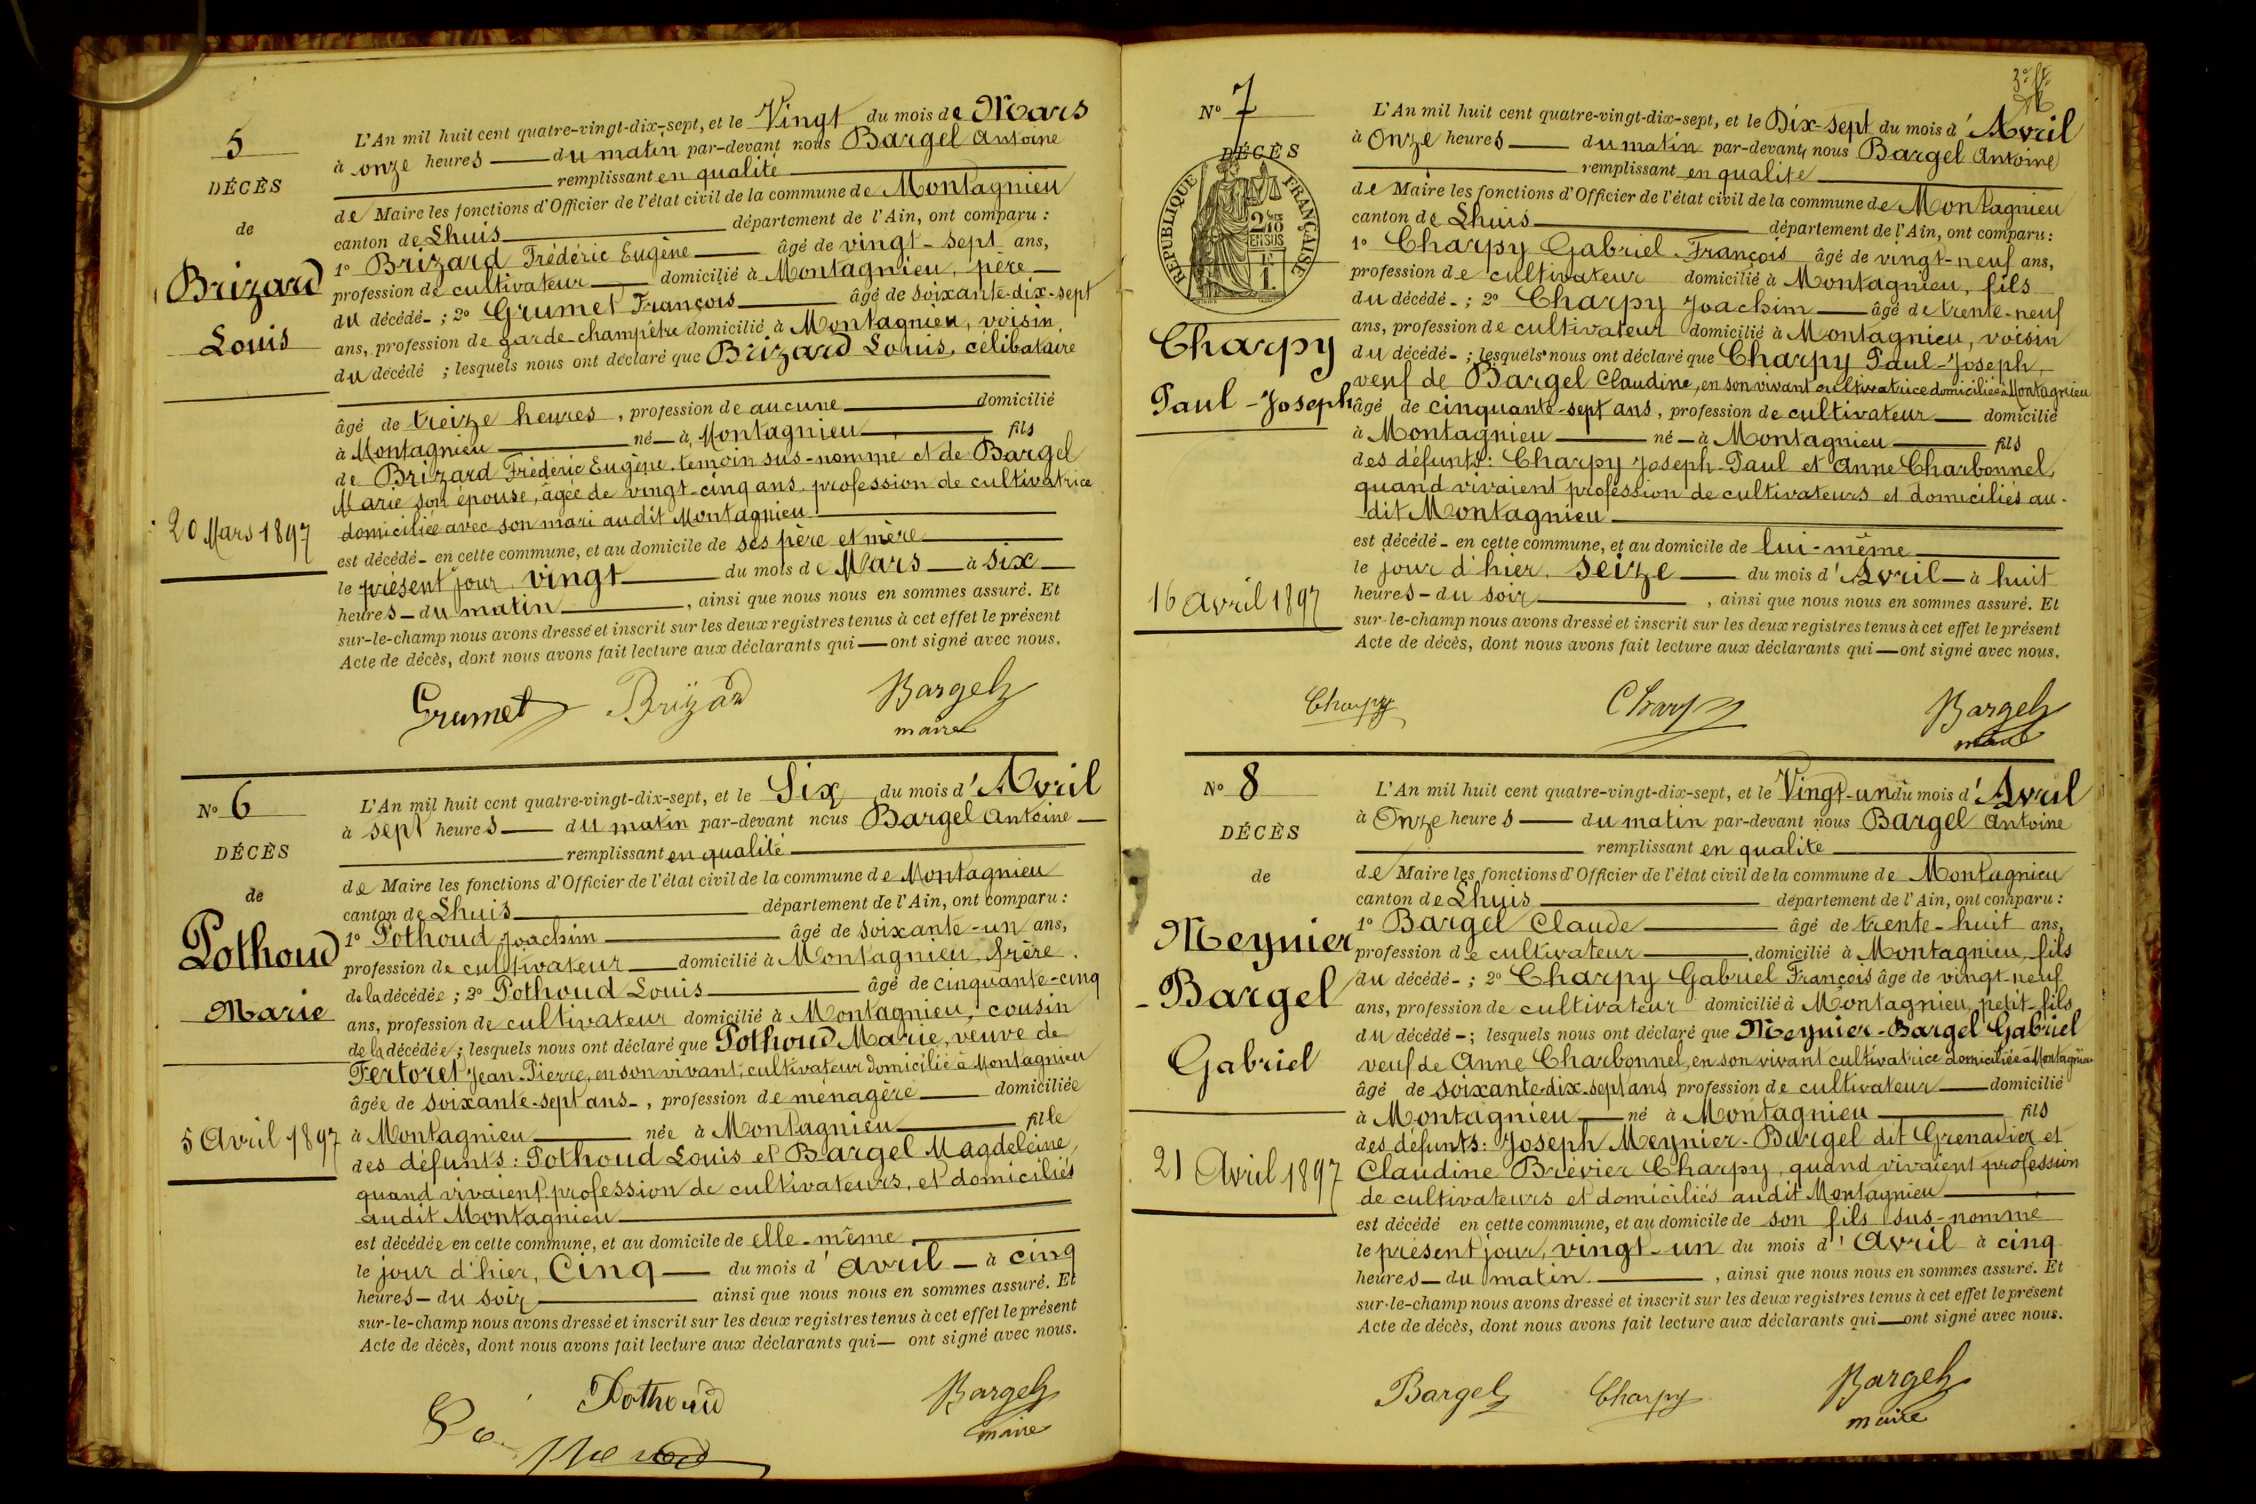 5
DÉCÈS
de
Brizard
Louis
20 Mars 1897
L'An mil huit cent quatre-vingt-dix-sept, et le Vingt du mois de Mars
à onze heures du matin par-devant nous Bargel Antoine
remplissant en qualité
de Maire les fonctions d'Officier de l'état civil de la commune de Montagnieu
canton de Lhuis département de l'Ain, ont comparu :
1° Brizard Frédéric Eugène âgé de vingt-sept ans,
profession de cultivateur domicilié à Montagnieu, père
du décédé ; 2° Grumet François âgé de soixante-dix-sept
ans, profession de garde-champêtre domicilié à Montagnieu, voisin
du décédé ; lesquels nous ont déclaré que Brizard Louis, célibataire
âgé de treize heures, profession de aucune domicilié
à Montagnieu né à Montagnieu fils
de Brizard Frédéric Eugène, temoin sus-nommé et de Bargel
Marie son épouse, âgée de vingt-cinq ans, profession de cultivatrice
domiciliée avec son mari audit Montagnieu
est décédé en cette commune, et au domicile de ses père et mère
le présent jour vingt du mois de Mars à six
heures du matin, ainsi que nous nous en sommes assuré. Et
sur-le-champ nous avons dressé et inscrit sur les deux registres tenus à cet effet le présent
Acte de décès, dont nous avons fait lecture aux déclarants qui ont signé avec nous.
Grumet Brizard Bargel
maire
N° 6
DÉCÈS
de
Pothoud
Marie
5 Avril 1897
L'An mil huit cent quatre-vingt-dix-sept, et le Six du mois d'Avril
à sept heures du matin par-devant nous Bargel Antoine
remplissant en qualité
de Maire les fonctions d'Officier de l'état civil de la commune de Montagnieu
canton de Lhuis département de l'Ain, ont comparu :
1° Pothoud Joachim âgé de soixante-un ans,
profession de cultivateur domicilié à Montagnieu, frère
de la décédée ; 2° Pothoud Louis âgé de cinquante-cinq
ans, profession de cultivateur domicilié à Montagnieu, cousin
de la décédée ; lesquels nous ont déclaré que Pothoud Marie, veuve de
Fertoret Jean-Pierre, en son vivant, cultivateur domicilié à Montagnieu
âgée de soixante-sept ans, profession de ménagère domiciliée
à Montagnieu née à Montagnieu fille
des défunts : Pothoud Louis et Bargel Magdeleine,
quand vivaient profession de cultivateurs, et domiciliés
audit Montagnieu
est décédée en cette commune, et au domicile de elle-même
le jour d'hier, Cinq du mois d'avril à cinq
heures du soir ainsi que nous nous en sommes assuré. Et
sur-le-champ nous avons dressé et inscrit sur les deux registres tenus à cet effet le présent
Acte de décès, dont nous avons fait lecture aux déclarants qui ont signé avec nous.
Pothoud Bargel
maire
N° 7
DÉCÈS
RÉPUBLIQUE FRANÇAISE
2/10 EN SUS
Charpy
Paul-Joseph
16 avril 1897
L'An mil huit cent quatre-vingt-dix-sept, et le Dix-sept du mois d'Avril
à Onze heures du matin par-devant nous Bargel Antoine
remplissant en qualité
de Maire les fonctions d'Officier de l'état civil de la commune de Montagnieu
canton de Lhuis département de l'Ain, ont comparu :
1° Charpy Gabriel-François âgé de vingt-neuf ans,
profession de cultivateur domicilié à Montagnieu, fils
du décédé ; 2° Charpy Joachim âgé de trente-neuf
ans, profession de cultivateur domicilié à Montagnieu, voisin
du décédé ; lesquels nous ont déclaré que Charpy Paul-Joseph,
veuf de Bargel Claudine, en son vivant cultivatrice domiciliée à Montagnieu
âgé de cinquante-sept ans, profession de cultivateur domicilié
à Montagnieu né à Montagnieu fils
des défunts : Charpy Joseph-Paul et Anne Charbonnel,
quand vivaient profession de cultivateurs et domiciliés au-
dit Montagnieu
est décédé en cette commune, et au domicile de lui-même
le jour d'hier, seize du mois d'Avril à huit
heures du soir, ainsi que nous nous en sommes assuré. Et
sur-le-champ nous avons dressé et inscrit sur les deux registres tenus à cet effet le présent
Acte de décès, dont nous avons fait lecture aux déclarants qui ont signé avec nous.
Charpy Charpy Bargel
maire
N° 8
DÉCÈS
de
Meynier
-Bargel
Gabriel
21 Avril 1897
L'An mil huit cent quatre-vingt-dix-sept, et le Vingt-un du mois d'Avril
à Onze heures du matin par-devant nous Bargel Antoine
remplissant en qualité
de Maire les fonctions d'Officier de l'état civil de la commune de Montagnieu
canton de Lhuis département de l'Ain, ont comparu :
1° Bargel Claude âgé de trente-huit ans,
profession de cultivateur domicilié à Montagnieu, fils
du décédé ; 2° Charpy Gabriel François âgé de vingt-neuf
ans, profession de cultivateur domicilié à Montagnieu, petit-fils
du décédé ; lesquels nous ont déclaré que Meynier-Bargel Gabriel
veuf de Anne Charbonnel, en son vivant cultivatrice domiciliée à Montagnieu
âgé de soixante-dix-sept ans, profession de cultivateur domicilié
à Montagnieu né à Montagnieu fils
des défunts : Joseph Meynier-Bargel dit Grenadier et
Claudine Brévier Charpy, quand vivaient profession
de cultivateurs et domiciliés audit Montagnieu
est décédé en cette commune, et au domicile de son fils sus-nommé
le présent jour, vingt-un du mois d'Avril à cinq
heures du matin, ainsi que nous nous en sommes assuré. Et
sur-le-champ nous avons dressé et inscrit sur les deux registres tenus à cet effet le présent
Acte de décès, dont nous avons fait lecture aux déclarants qui ont signé avec nous.
Bargel Charpy Bargel
maire